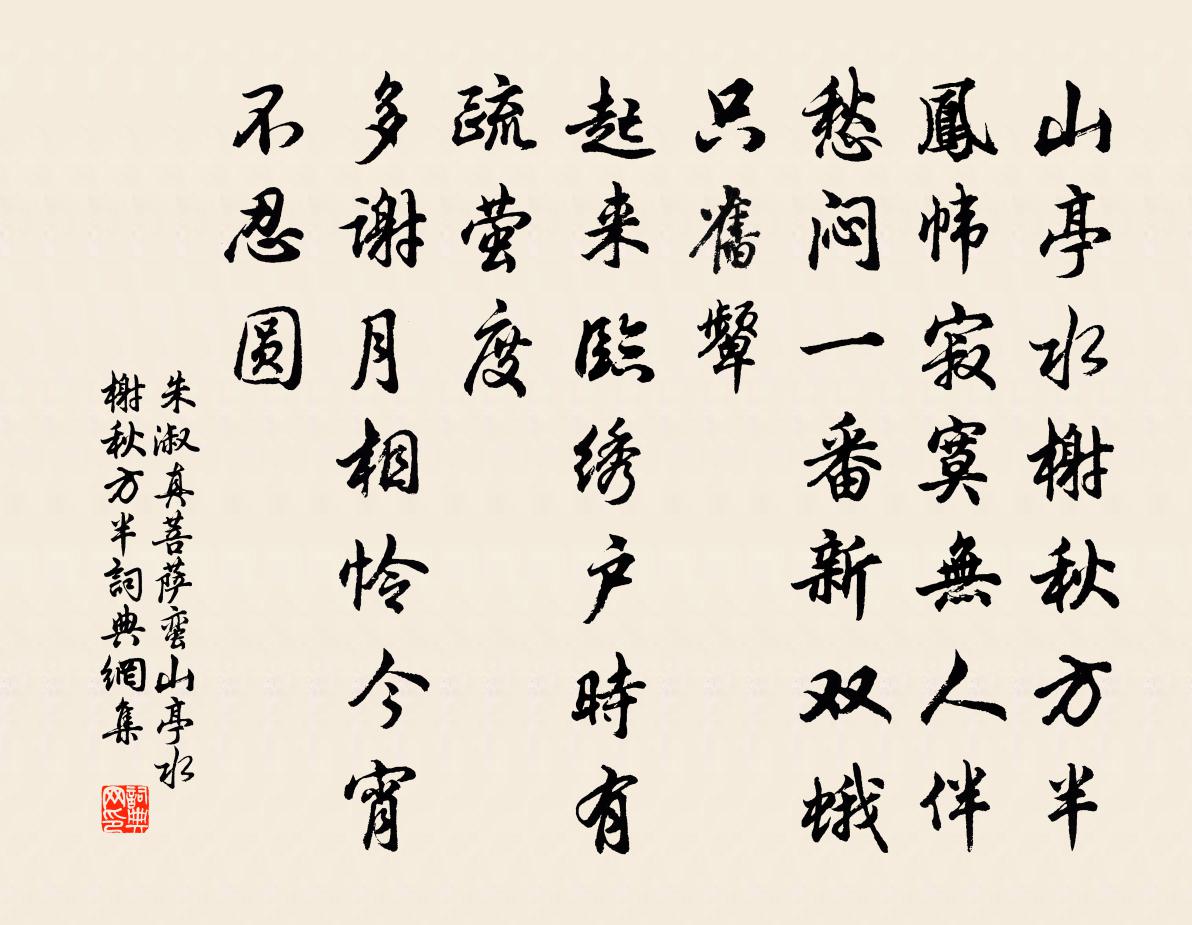 山亭水榭秋方半
鳳帏寂寞無人伴
愁闷一番新双蛾
只舊顰
起来臨绣户時有
疏萤度
多谢月相怜今宵
不忍圆
朱淑真菩萨蛮山亭水
榭秋方半詞典網集
詞典
网印